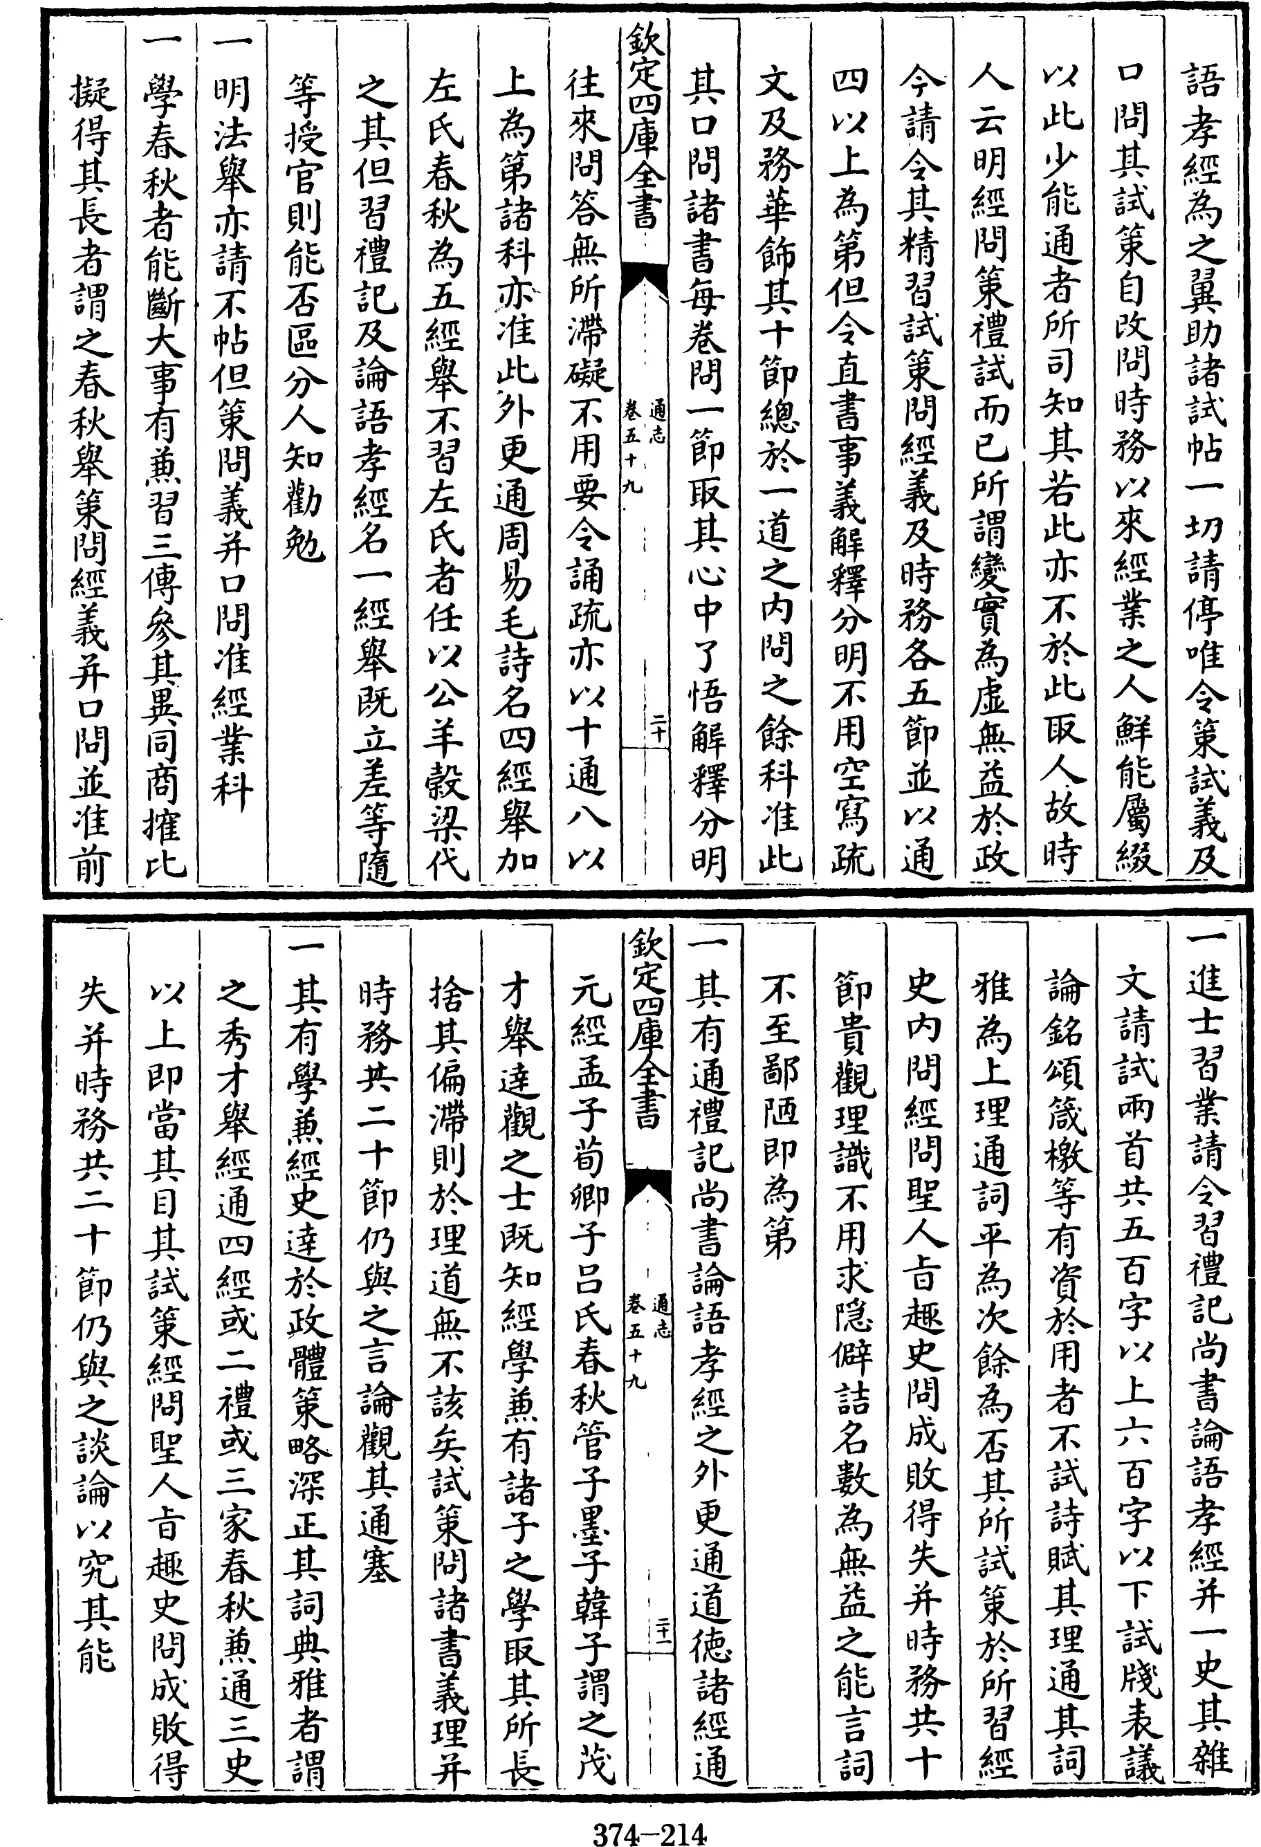 語孝經為之翼助諸試帖一切請停唯令策試義及
口問其試策自改問時務以來經業之人鮮能屬綴
以此少能通者所司知其若此亦不於此取人故時
人云明經問策禮試而已所謂變實為虛無益於政
今請令其精習試策問經義及時務各五節並以通
四以上為第但令直書事義解釋分明不用空寫疏
文及務華飾其十節總於一道之內問之餘科准此
其口問諸書每卷問一節取其心中了悟解釋分明
欽定四庫全書
通志
卷五十九
二十
往來問答無所滯礙不用要令誦疏亦以十通八以
上為第諸科亦准此外更通周易毛詩名四經舉加
左氏春秋為五經舉不習左氏者任以公羊穀梁代
之其但習禮記及論語孝經名一經舉既立差等隨
等授官則能否區分人知勸勉
一明法舉亦請不帖但策問義并口問准經業科
一學春秋者能斷大事有兼習三傳參其異同商搉比
擬得其長者謂之春秋舉策問經義并口問並准前
一進士習業請令習禮記尚書論語孝經并一史其雜
文請試兩首共五百字以上六百字以下試牋表議
論銘頌箴檄等有資於用者不試詩賦其理通其詞
雅為上理通詞平為次餘為否其所試策於所習經
史內問經問聖人旨趣史問成敗得失并時務共十
節貴觀理識不用求隱僻詰名數為無益之能言詞
不至鄙陋即為第
一其有通禮記尚書論語孝經之外更通道德諸經通
欽定四庫全書
通志
卷五十九
二十一
元經孟子荀卿子呂氏春秋管子墨子韓子謂之茂
才舉達觀之士既知經學兼有諸子之學取其所長
捨其偏滯則於理道無不該矣試策問諸書義理并
時務共二十節仍與之言論觀其通塞
一其有學兼經史達於政體策略深正其詞典雅者謂
之秀才舉經通四經或二禮或三家春秋兼通三史
以上即當其目其試策經問聖人旨趣史問成敗得
失并時務共二十節仍與之談論以究其能
374-214